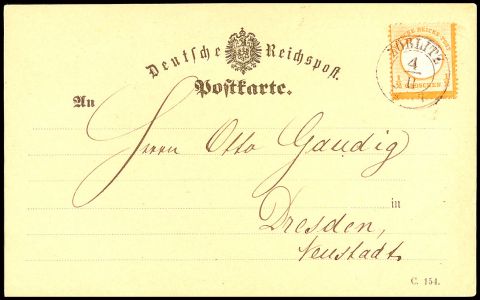 Deutsche Reichspost.
Postkarte.
ZÖBLITZ
4
11
DEUTSCHE REICHS-POST
½ GROSCHEN ½
An
Herrn Otto Gaudig
in
Dresden,
Neustadt.
C. 154.